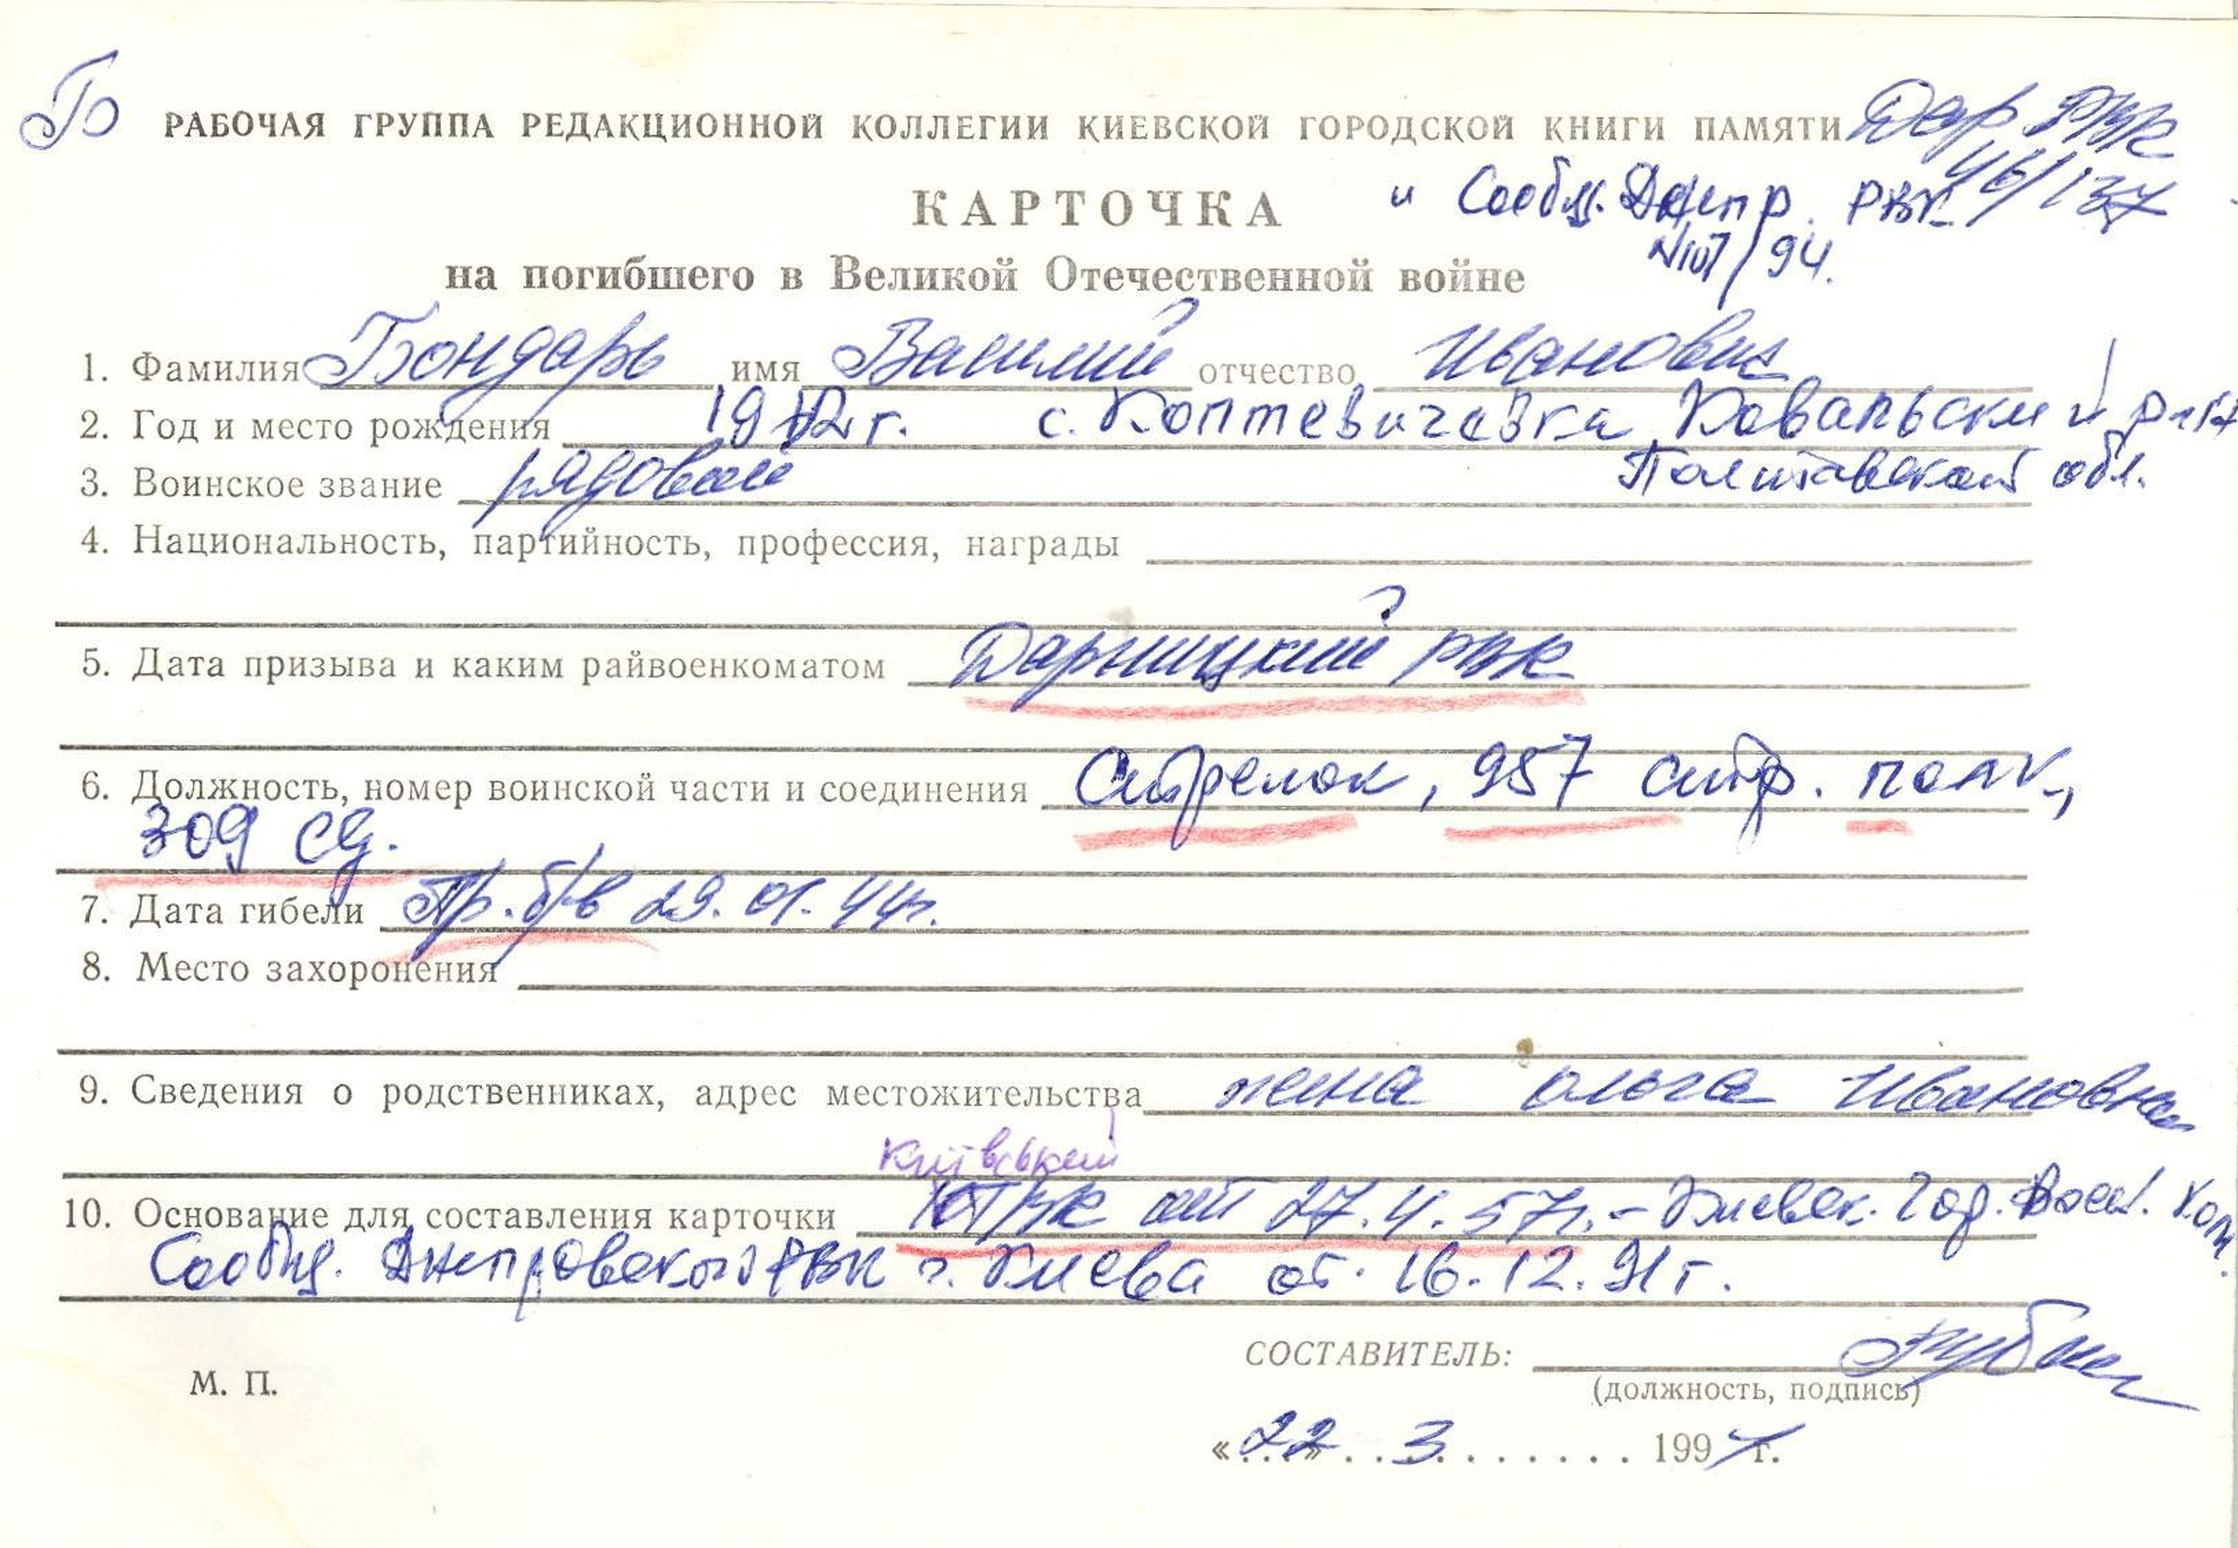 Б РАБОЧАЯ ГРУППА РЕДАКЦИОННОЙ КОЛЛЕГИИ КИЕВСКОЙ ГОРОДСКОЙ КНИГИ ПАМЯТИ Дар. РВК
46/137
КАРТОЧКА и Сообщ. Днепр. РВК
/94.
на погибшего в Великой Отечественной войне
1. Фамилия Бондарь имя Василий отчество Иванович
2. Год и место рождения 1912 г. с. Коптевичевка, Ковальский р-н
Полтавской обл.
3. Воинское звание рядовой
4. Национальность, партийность, профессия, награды
5. Дата призыва и каким райвоенкоматом Дарницкий РВК
6. Должность, номер воинской части и соединения Стрелок, 957 стр. полк,
309 сд.
7. Дата гибели Пр. б/в 29.01.44г.
8. Место захоронения
9. Сведения о родственниках, адрес местожительства жена Ольга Ивановна
Київський
10. Основание для составления карточки от 27.4.57г. - Киевск. Гор. Воен. Ком.
Сообщ. Днепровского РВК г. Киева от 16.12.91г.
СОСТАВИТЕЛЬ:
(должность, подпись)
М. П.
«22» 3 1994 г.